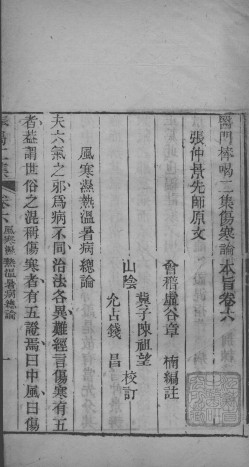 醫門棒喝二集傷寒論本旨卷六
張仲景先師原文
會稽虛谷章　楠編註
山陰
冀子陳祖望
尤占錢　昌
校訂
風寒濕熱溫暑病總論
夫六氣之邪為病不同治法各異難經言傷寒有五
者葢謂世俗之混稱傷寒者有五證焉曰中風曰傷
卷六
風寒濕熱溫暑病總論
一